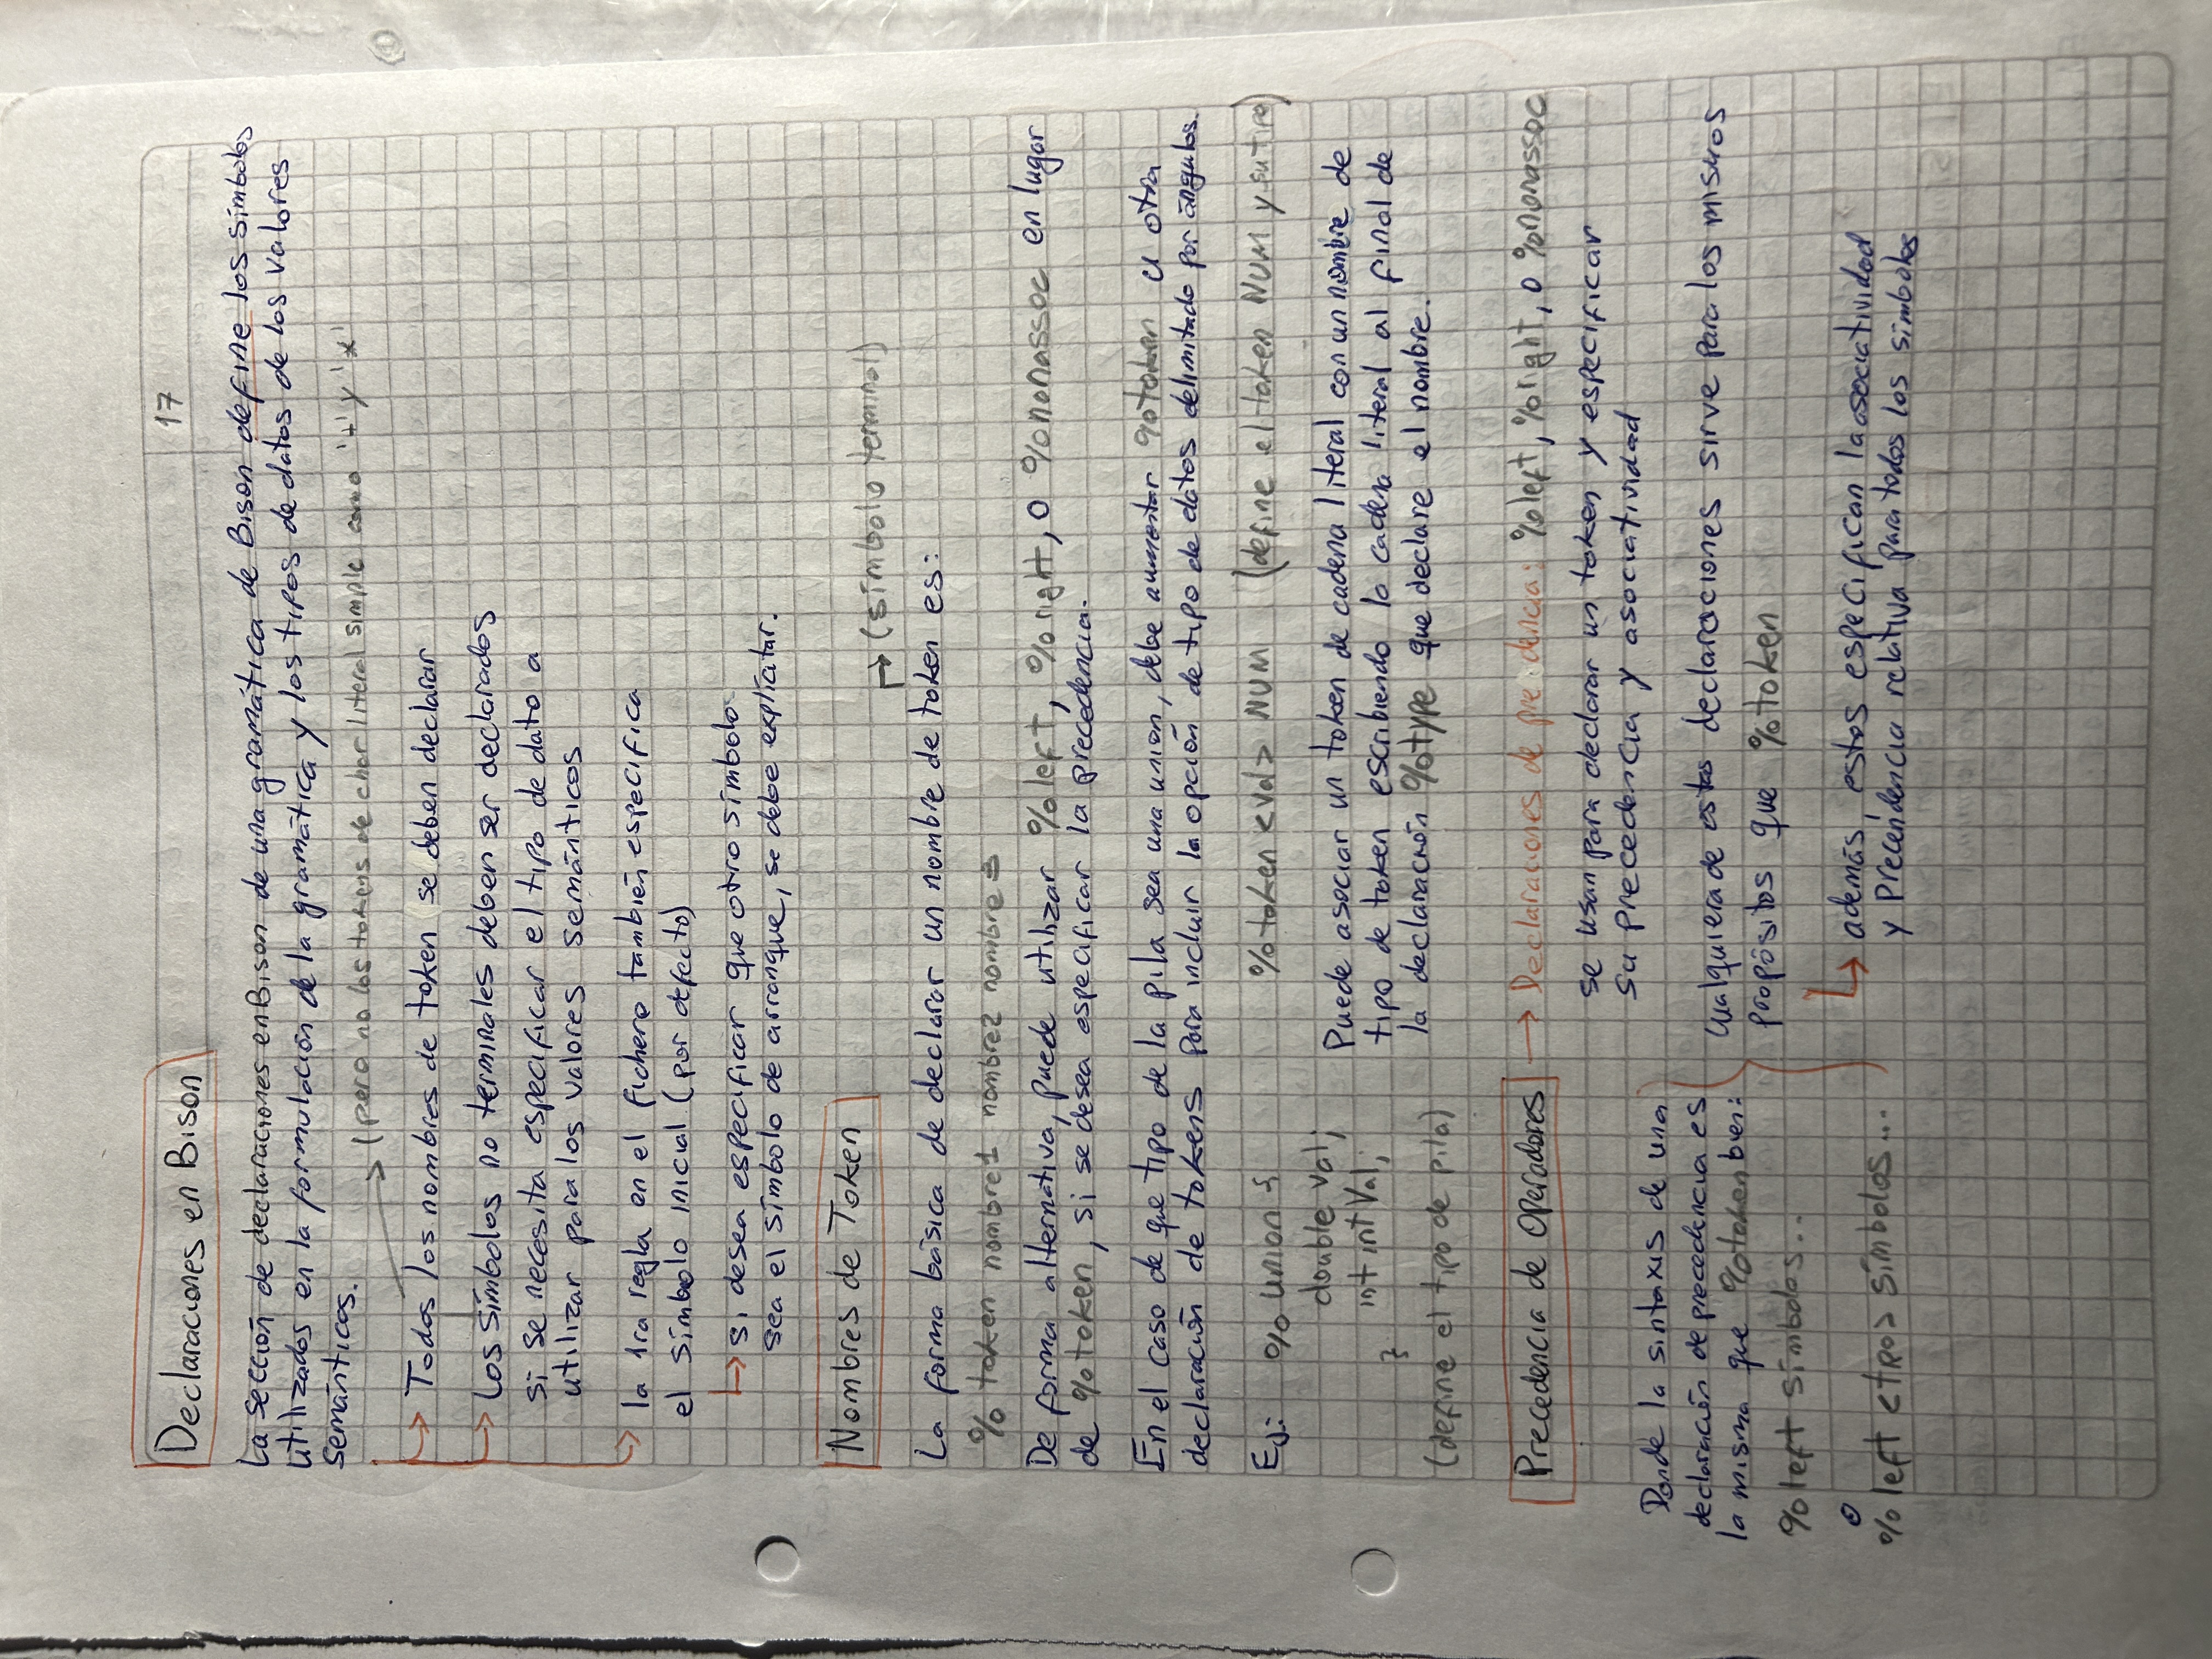 17
Declaraciones en Bison
La sección de declaraciones en Bison de una gramática de Bison define los símbolos
utilizados en la formulación de la gramática y los tipos de datos de los valores
semánticos.
(pero no los tokens de char literal simple como '+' y '*'
Todos los nombres de token se deben declarar
Los símbolos no terminales deben ser declarados
si se necesita especificar el tipo de dato a
utilizar para los valores semánticos
la 1ra regla en el fichero también especifica
el símbolo inicial (por defecto)
si desea especificar que otro símbolo
sea el símbolo de arranque, se debe explicitar.
Nombres de Token
(símbolo terminal)
La forma básica de declarar un nombre de token es:
% token nombre1 nombre2 nombre3
De forma alternativa, puede utilizar %left, %right, o %nonassoc en lugar
de %token, si se desea especificar la precedencia.
En el caso de que tipo de la pila sea una union, debe aumentar %token u otra
declaración de tokens para incluir la opción de tipo de datos delimitado por ángulos.
Ej: % union {
double val;
int intVal;
}
(define el tipo de pila)
%token <val> NUM (define el token NUM y su tipo)
Puede asociar un token de cadena literal con un nombre de
tipo de token escribiendo la cadena literal al final de
la declaración %type que declare el nombre.
Precedencia de Operadores
Declaraciones de pre dencia: %left, %right, o %nonassoc
se usan para declarar un token y especificar
su precedencia y asociatividad
Donde la sintaxis de una
declaración de precedencia es
la misma que %token bien:
%left símbolos..
o
%left <tipo> símbolos...
Cualquiera de estas declaraciones sirve para los mismos
propósitos que %token
además, estos especifican la asociatividad
y Precendencia relativa para todos los símbolos